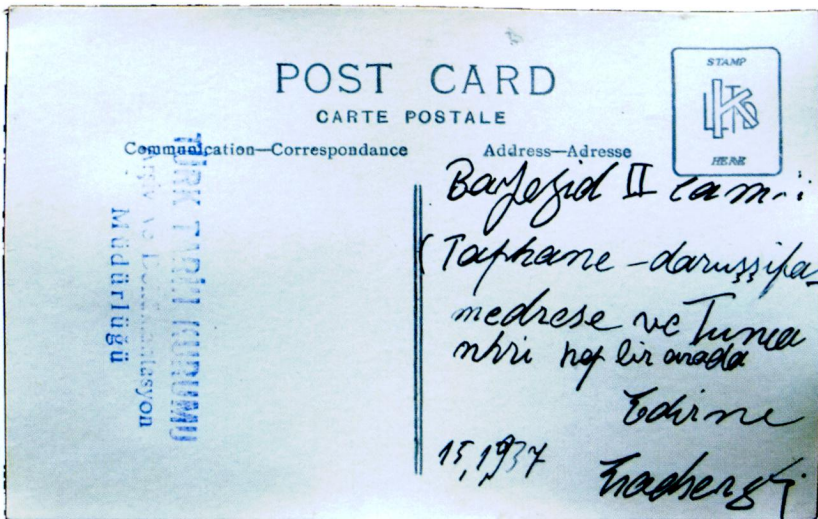 POST CARD
CARTE POSTALE
Communication—Correspondance
Address—Adresse
STAMP
HERE
TÜRK TARİH KURUMU
Arşiv ve Dokümantasyon
Müdürlüğü
Bayezid II Cami-i
(Taphane - daruşşifa-
medrese ve Tunca
nhri hep bir arada
Edirne
15,1937